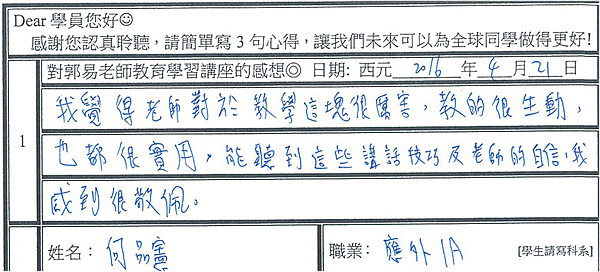 Dear 學員您好☺
感謝您認真聆聽，請簡單寫 3 句心得，讓我們未來可以為全球同學做得更好!
對郭易老師教育學習講座的感想◎ 日期: 西元 2016 年 4 月 21 日
1
我覺得老師對於教學這塊很厲害，教的很生動，
也都很實用，能聽到這些講話技巧及老師的自信，我
感到很敬佩。
姓名： 何品憲
職業： 應外1A [學生請寫科系]